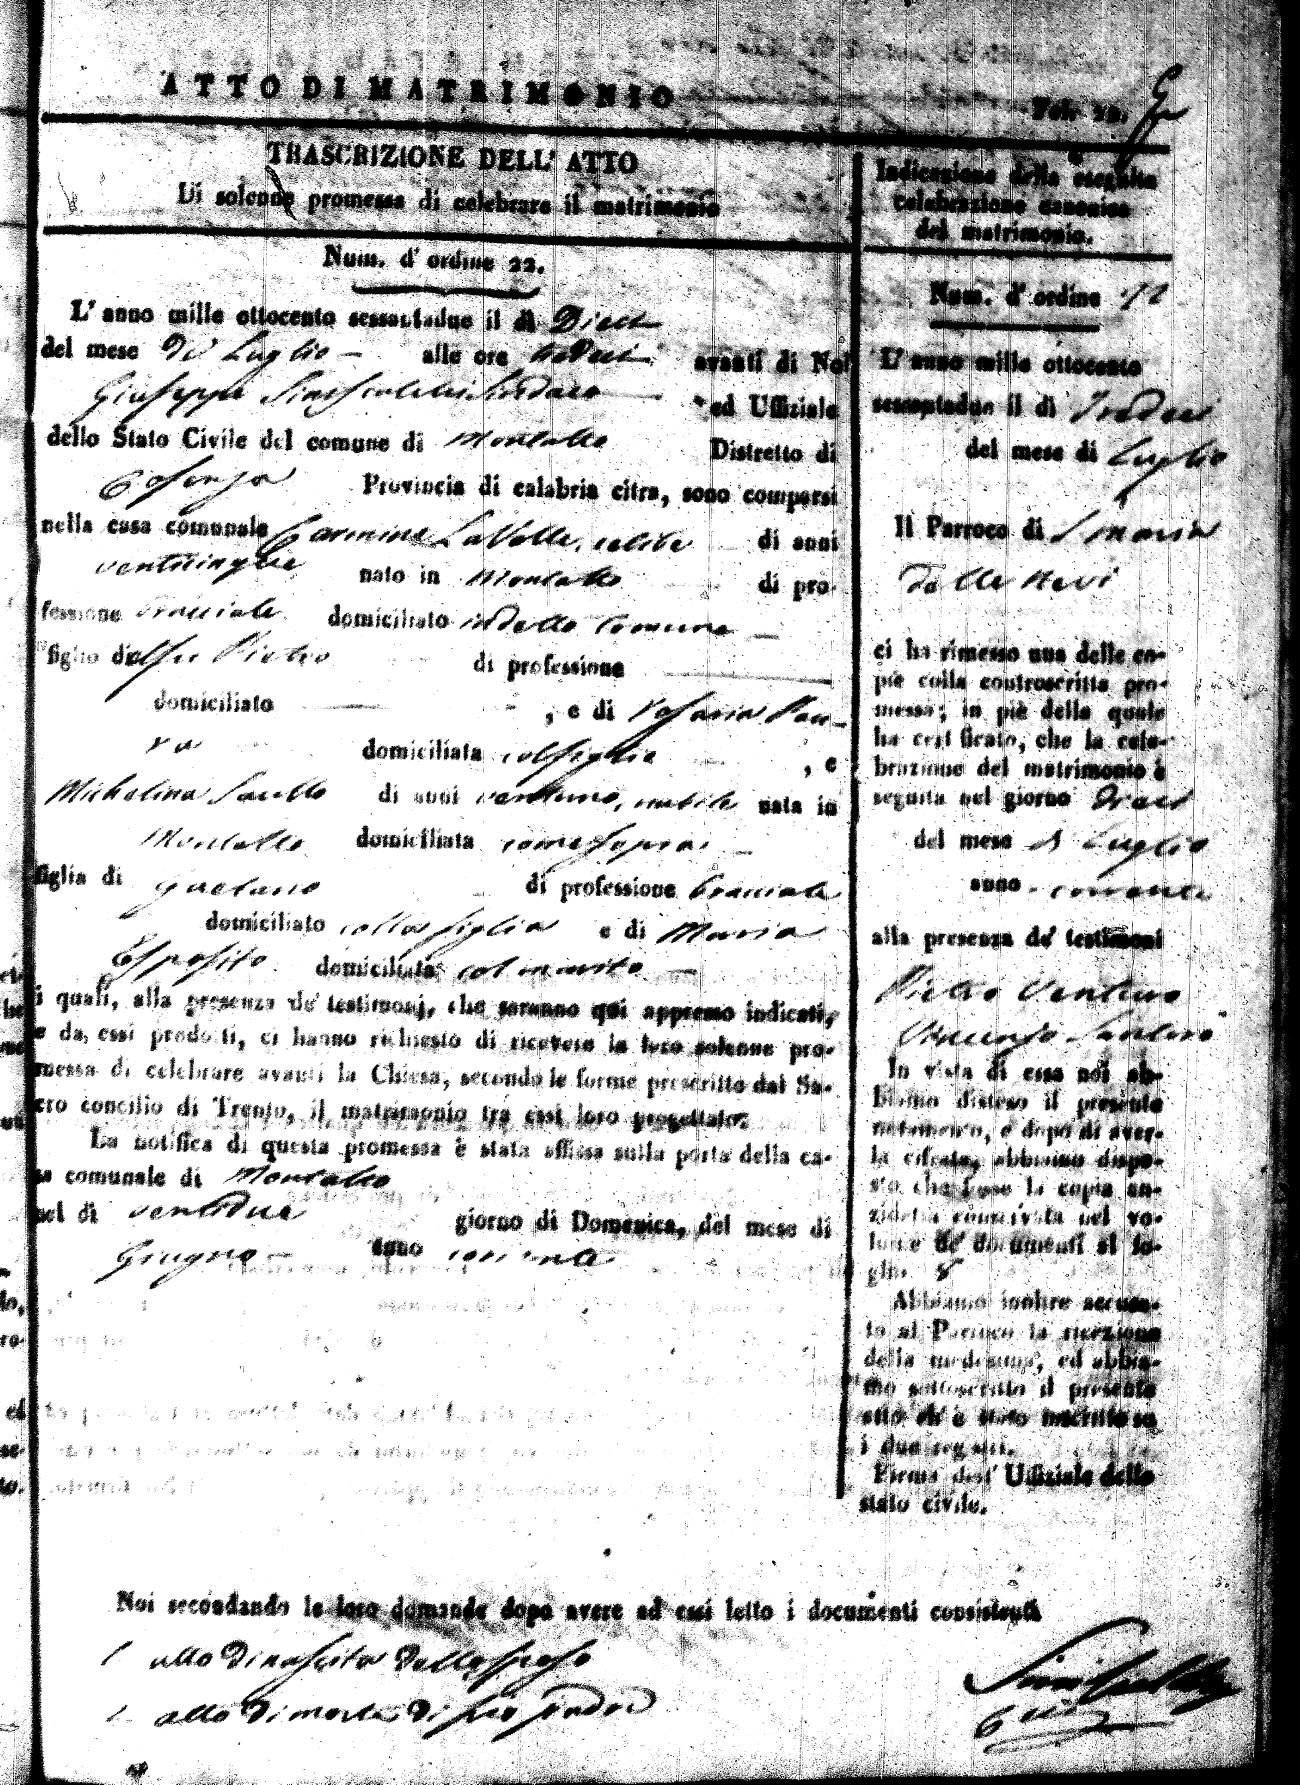 ATTO DI MATRIMONIO
TRASCRIZIONE DELL' ATTO
Di solenne promessa di celebrare il matrimonio
Num. d' ordine 22.
L' anno mille ottocento sessantadue il dì Dieci
del mese di Luglio alle ore tredeci avanti di Noi
Giuseppe Siniscalchi Sindaco ed Uffiziale
dello Stato Civile del comune di Montalto Distretto di
Cosenza Provincia di calabria citra, sono comparsi
nella casa comunale Carmine La Valle, celibe di anni
venticinque nato in Montalto di pro-
fessione bracciale domiciliato in detto Comune
figlio del fu Pietro di professione
domiciliato , e di Rosaria
domiciliata col figlio , e
Michelina Saullo di anni ventuno, nubile nata in
Montalto domiciliata come sopra
figlia di Gaetano di professione bracciale
domiciliato colla figlia e di Maria
Esposito domiciliata col marito
i quali, alla presenza de' testimonj, che saranno qui appresso indicati,
e da essi prodotti, ci hanno richiesto di ricevere la loro solenne pro-
messa di celebrare avanti la Chiesa, secondo le forme prescritte dal Sa-
cro concilio di Trento, il matrimonio tra essi loro progettato.
La notifica di questa promessa è stata affissa sulla porta della ca-
sa comunale di Montalto
nel dì ventidue giorno di Domenica, del mese di
Giugno anno corrente
Indicazione della eseguita
celebrazione canonica
del matrimonio.
Num. d' ordine
L' anno mille ottocento
sessantadue il dì Tredeci
del mese di Luglio
Il Parroco di S Maria
della Nevi
ci ha rimesso una delle co-
pie colla controscritta pro-
messa; in piè della quale
ha certificato, che la cele-
brazione del matrimonio è
seguita nel giorno
del mese di Luglio
anno corrente
alla presenza de' testimoni
Pietro Ventura
Vincenzo Santoro
In vista di essa noi ab-
biamo disteso il presente
notamento, e dopo di aver-
la cifrata, abbiamo dispo-
sto che fosse la copia an-
zidetta conservata nel vo-
lume de' documenti al fo-
glio 8
Abbiamo inoltre accusa-
to al Parroco la ricezione
della medesima, ed abbia-
mo sottoscritto il presente
atto ch' è stato inscritto su
i due registri.
Firma dell' Uffiziale dello
stato civile.
Noi secondando le loro domande dopo avere ad essi letto i documenti consistenti
1 atto di nascita dello sposo
1 atto di morte di suo padre